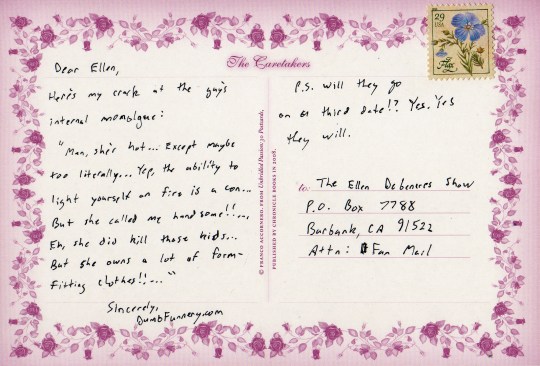 The Caretakers
Dear Ellen,
Here's my crack at the guy's
internal monolgue:
"Man, she's hot... Except maybe
too literally... Yep, the ability to
light yourself on fire is a con...
But she called me handsome!!...
Eh, she did kill those kids...
But she owns a lot of form-
fitting clothes!!..."
Sincerely,
DumbFunnery.com
© FRANCO ACCORNERO, FROM Unbridled Passion: 30 Postcards,
PUBLISHED BY CHRONICLE BOOKS IN 2008.
29
USA
Flax
P.S. will they go
on a third date!? Yes. Yes
they will.
to: The Ellen Debeneres Show
P.O. Box 7788
Burbank, CA 91522
Attn: Fan Mail